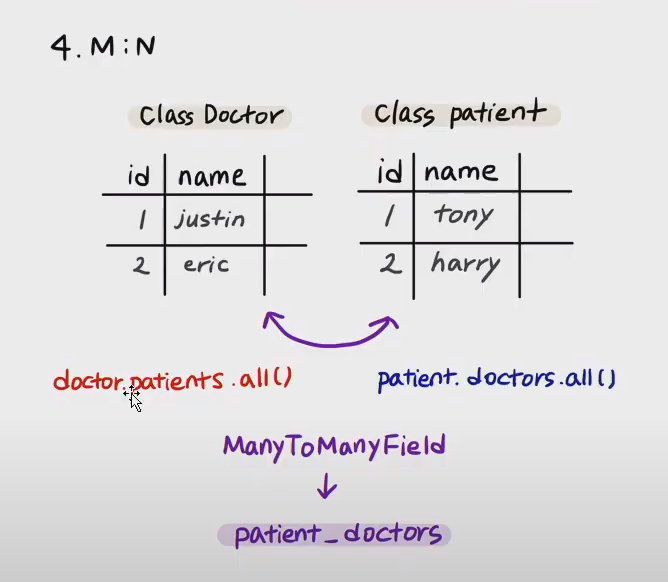 4. M:N
Class Doctor
Class patient
id name
1 justin
2 eric
id name
1 tony
2 harry
doctor.patients.all()
patient.doctors.all()
ManyToManyField
patient_doctors